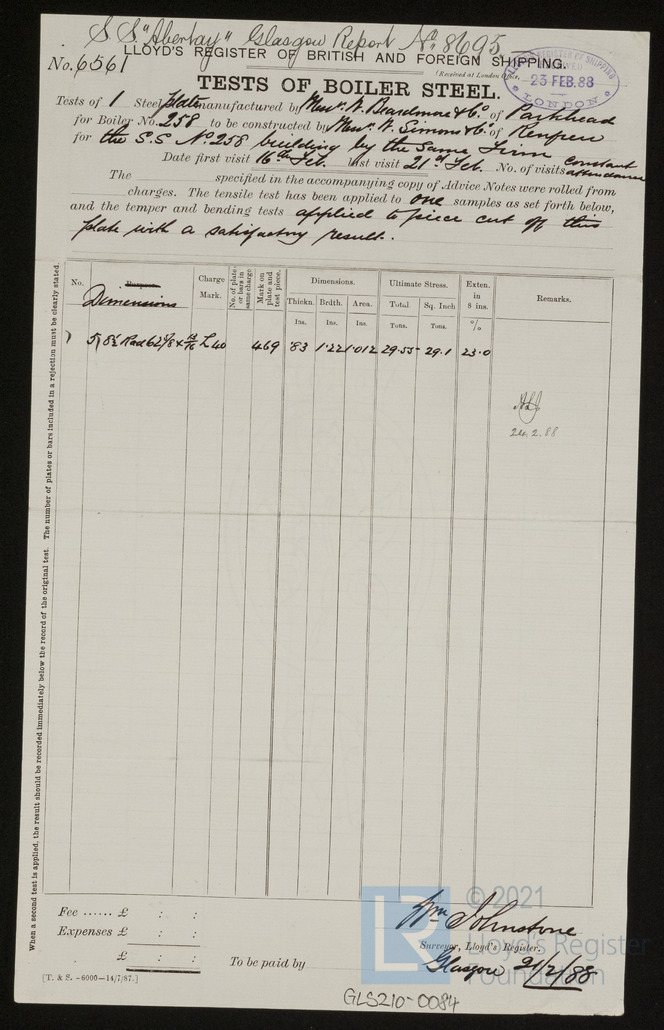 S.S. "Abertay" Glasgow Report No. 8695
LLOYD'S REGISTER OF BRITISH AND FOREIGN SHIPPING.
No. 6561
(Received at London Office,
LLOYD'S REGISTER OF SHIPPING
RECEIVED
23 FEB. 88
LONDON
TESTS OF BOILER STEEL.
Tests of 1 Steel plate manufactured by Messrs. W. Beardmore & Co. of Parkhead
for Boiler No. 258 to be constructed by Messrs. W. Simons & Co. of Renfrew
for the S.S. No. 258 building by the same Firm
Date first visit 16th Feb. last visit 21st Feb. No. of visits constant attendance
The specified in the accompanying copy of Advice Notes were rolled from
charges. The tensile test has been applied to one samples as set forth below,
and the temper and bending tests applied to piece cut off this
plate with a satisfactory result.
No. Purpose. Dimensions Charge Mark. No. of plates or bars in same charge Mark on plate and test piece. Dimensions. Ultimate Stress. Exten. in 8 ins. Remarks.
Thickn. Brdth. Area. Total Sq. Inch
Ins. Ins. Ins. Tons. Tons. %
1 5/8½ Rad 62⅞ × 13/16 L 40 469 .83 1.22 1.012 29.55 29.1 23.0
24.2.88
When a second test is applied, the result should be recorded immediately below the record of the original test. The number of plates or bars included in a rejection must be clearly stated.
Fee ...... £ : :
Expenses £ : :
£ : :
To be paid by
Wm Johnstone
Surveyor, Lloyd's Register.
Glasgow 21/2/88
[T. & S. -6000-14/7/87.]
LR
© 2021
Lloyd's Register
Foundation
GLS210-0084